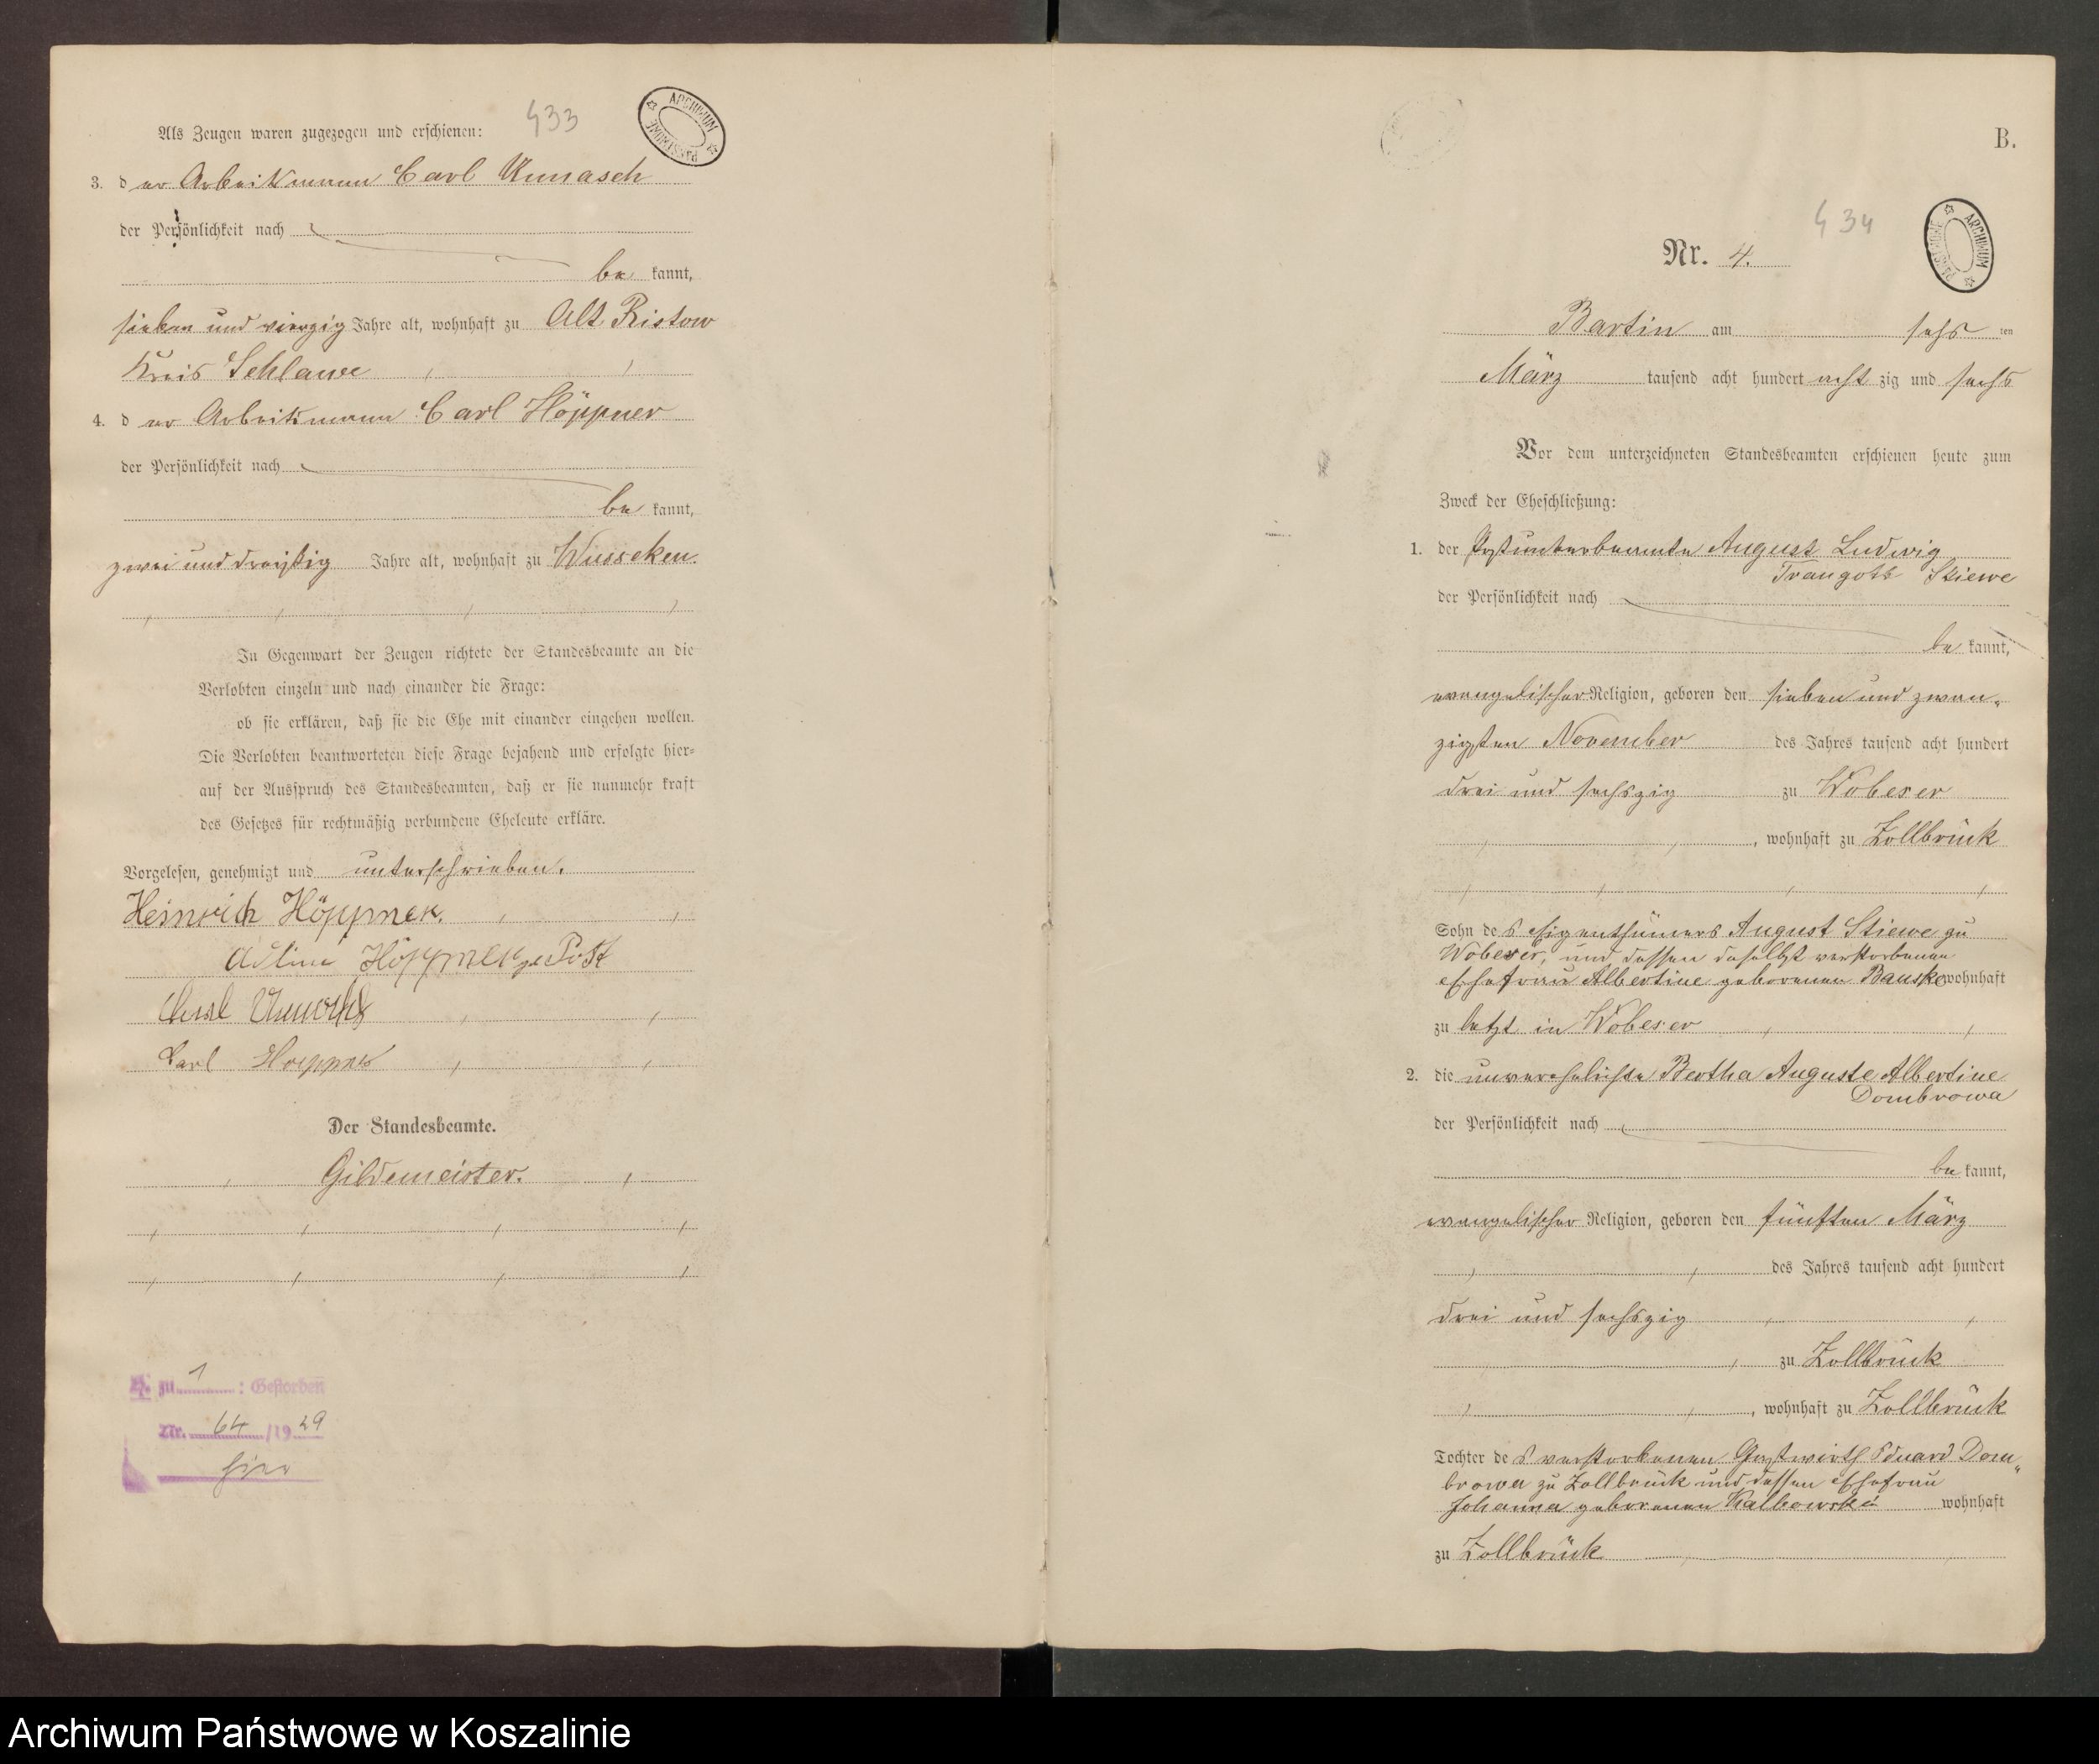 433
ARCHIWUM PAŃSTWOWE
Als Zeugen waren zugezogen und erschienen:
3. der Arbeitsmann Carl Unnasch
der Persönlichkeit nach
be kannt,
sieben und vierzig Jahre alt, wohnhaft zu Alt Ristow
Kreis Schlawe
4. der Arbeitsmann Carl Höppner
der Persönlichkeit nach
be kannt,
zwei und dreißig Jahre alt, wohnhaft zu Wusseken.
In Gegenwart der Zeugen richtete der Standesbeamte an die
Verlobten einzeln und nach einander die Frage:
ob sie erklären, daß sie die Ehe mit einander eingehen wollen.
Die Verlobten beantworteten diese Frage bejahend und erfolgte hier-
auf der Ausspruch des Standesbeamten, daß er sie nunmehr kraft
des Gesetzes für rechtmäßig verbundene Eheleute erkläre.
Vorgelesen, genehmigt und unterschrieben.
Heinrich Höppner.
Höppner
Carl Hoeppner
Der Standesbeamte.
Gildemeister.
H. zu 1 : Gestorben
Nr. 64 /1929
hier
B.
434
ARCHIWUM PAŃSTWOWE
Nr. 4.
Bartin am sechs ten
März tausend acht hundert acht zig und sechs
Vor dem unterzeichneten Standesbeamten erschienen heute zum
Zweck der Eheschließung:
1. der Postunterbeamte August Ludwig
Traugott Stiewe
der Persönlichkeit nach
be kannt,
evangelischer Religion, geboren den sieben und zwan-
zigsten November des Jahres tausend acht hundert
drei und sechszig zu Wobeser
, wohnhaft zu Zollbrück
Sohn des Eigenthümers August Stiewe zu
Wobeser, und dessen daselbst verstorbenen
Ehefrau Albertine geborenen Banske wohnhaft
zu letzt in Wobeser
2. die unverehelichte Bertha Auguste Albertine
Dombrowa
der Persönlichkeit nach
be kannt,
evangelischer Religion, geboren den fünften März
des Jahres tausend acht hundert
drei und sechszig
zu Zollbrück
, wohnhaft zu Zollbrück
Tochter des verstorbenen Gastwirth Eduard Dom-
browa zu Zollbrück und dessen Ehefrau
Johanna geborenen Kalbowski wohnhaft
zu Zollbrück
Archiwum Państwowe w Koszalinie